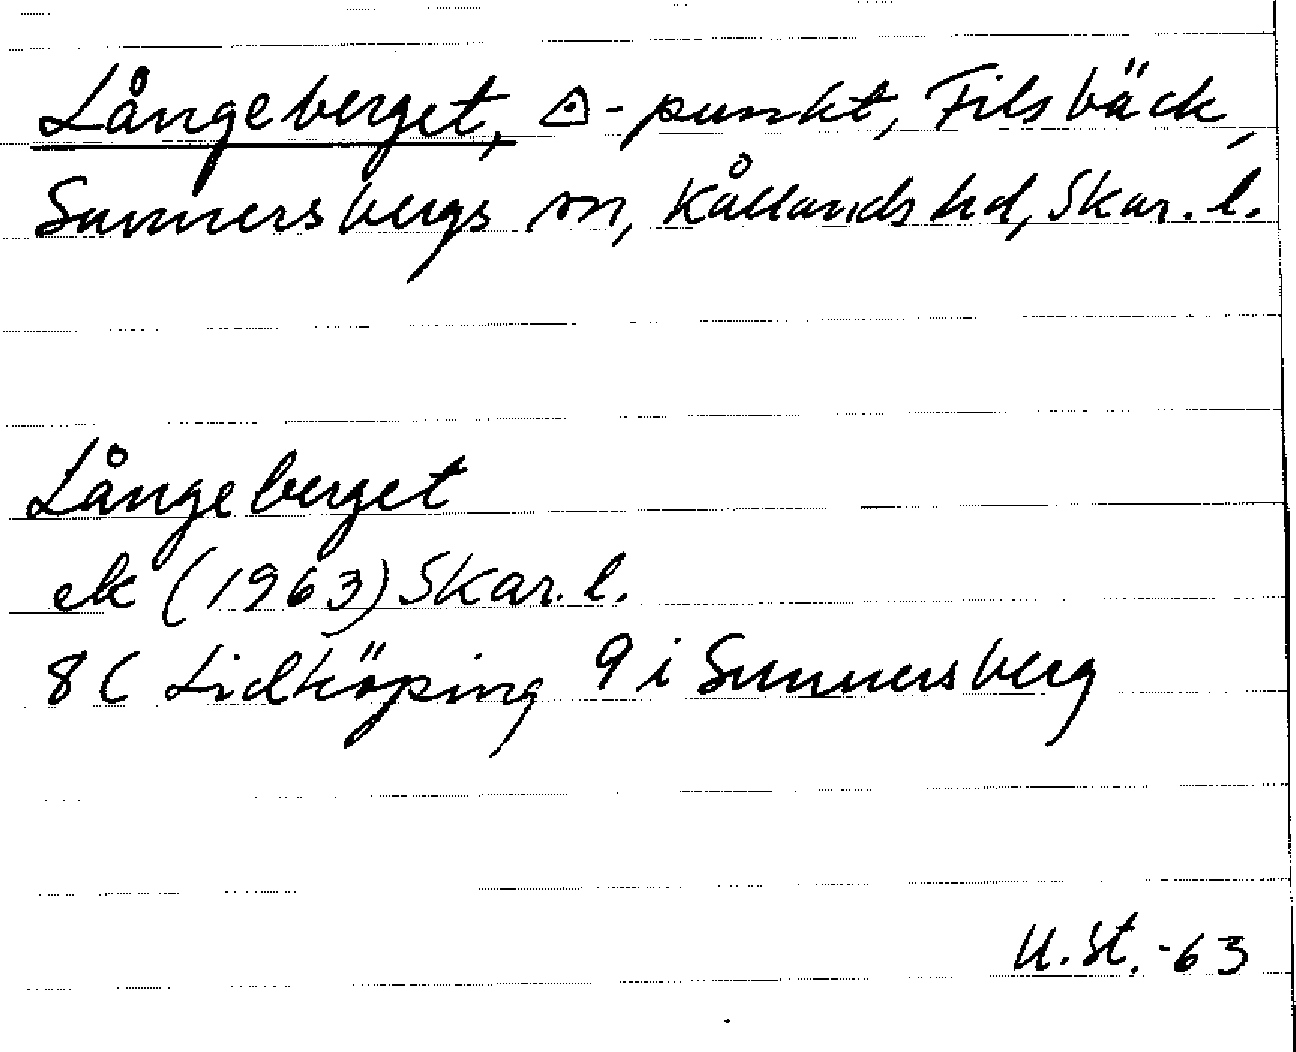 Långeberget, ◬-punkt, Filsbäck,
Sunnersbergs sn, Kållands hd, Skar. l.
Långeberget
ek (1963) Skar. l.
8C Lidköping 9i Sunnersberg
U. St. -63